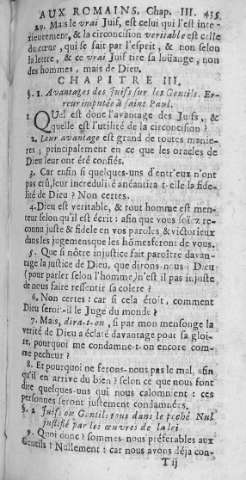 AUX ROMAINS. Chap. III. 435
29. Mais le vrai Juif, est celui qui l'est inte-
rieurement, & la circoncision veritable est celle
du cœur, qui se fait par l'esprit, & non selon
la lettre, & ce vrai Juif tire sa loüange, non
des hommes, mais de Dieu.
CHAPITRE III.
§. 1. Avantages des Juifs sur les Gentils. Er-
reur imputée à saint Paul.
1 QUel est donc l'avantage des Juifs, &
quelle est l'utilité de la circoncision?
2. Leur avantage est grand de toutes manie-
res; principalement en ce que les oracles de
Dieu leur ont été confiés.
3. Car enfin si quelques-uns d'entr'eux n'ont
pas crû, leur incredulité anéantira-t-elle la fidé-
lité de Dieu? Non certes.
4. Dieu est veritable, & tout homme est men-
teur selon qu'il est écrit: afin que vous soiez re-
connu juste & fidele en vos paroles, & victorieux
dans les jugemens que les hõmes feront de vous.
5. Que si nôtre injustice fait paroître davan-
tage la justice de Dieu, que dirons-nous? Dieu
(pour parler selon l'homme) n'est-il pas injuste
de nous faire ressentir sa colere?
6. Non certes: car si cela étoit, comment
Dieu seroit-il le Juge du monde?
7. Mais, dira-t-on, si par mon mensonge la
verité de Dieu a éclaté davantage pour sa gloi-
re, pourquoi me condamne-t-on encore com-
me pecheur?
8. Et pourquoi ne ferons-nous pas le mal, afin
qu'il en arrive du bien? selon ce que nous font
dire quelques-uns qui nous calomnient: ces
personnes seront justement condamnées.
§. 2. Juifs ou Gentils tous dans le peché. Nul
justifié par les œuvres de la loi.
9. Quoi donc? sommes-nous préferables aux
Gentils? Nullement: car nous avons déja con-
T ij